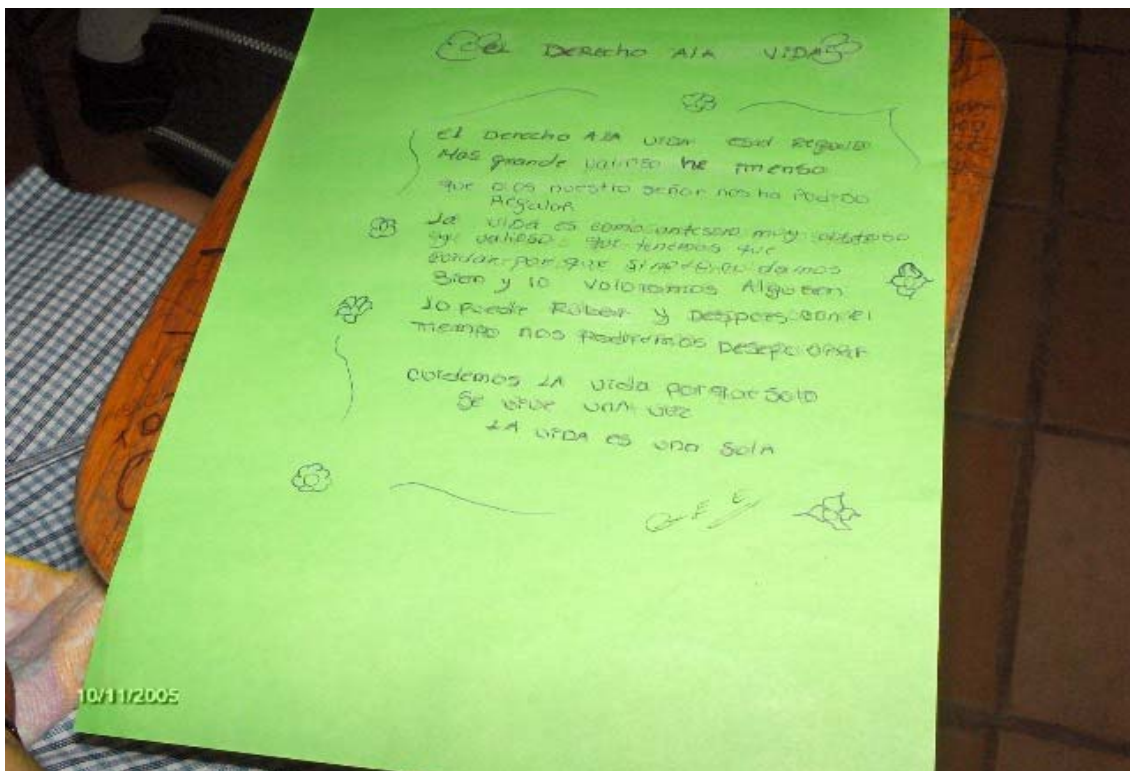 EL DERECHO A LA VIDA
El Derecho A LA VIDA es el Regalo
Mas grande valioso he imenso
que Dios nuestro señor nos ha Podido
Regalar
La VIDA es como un tesoro muy
valioso que tenemos que
cuidar por que si no
Bien y lo valoramos Alguien
lo puede Robar y Despues con el
Tiempo nos
cuidemos LA vida porque Solo
Se vive UNA vez
LA VIDA es una Sola
10/11/2005